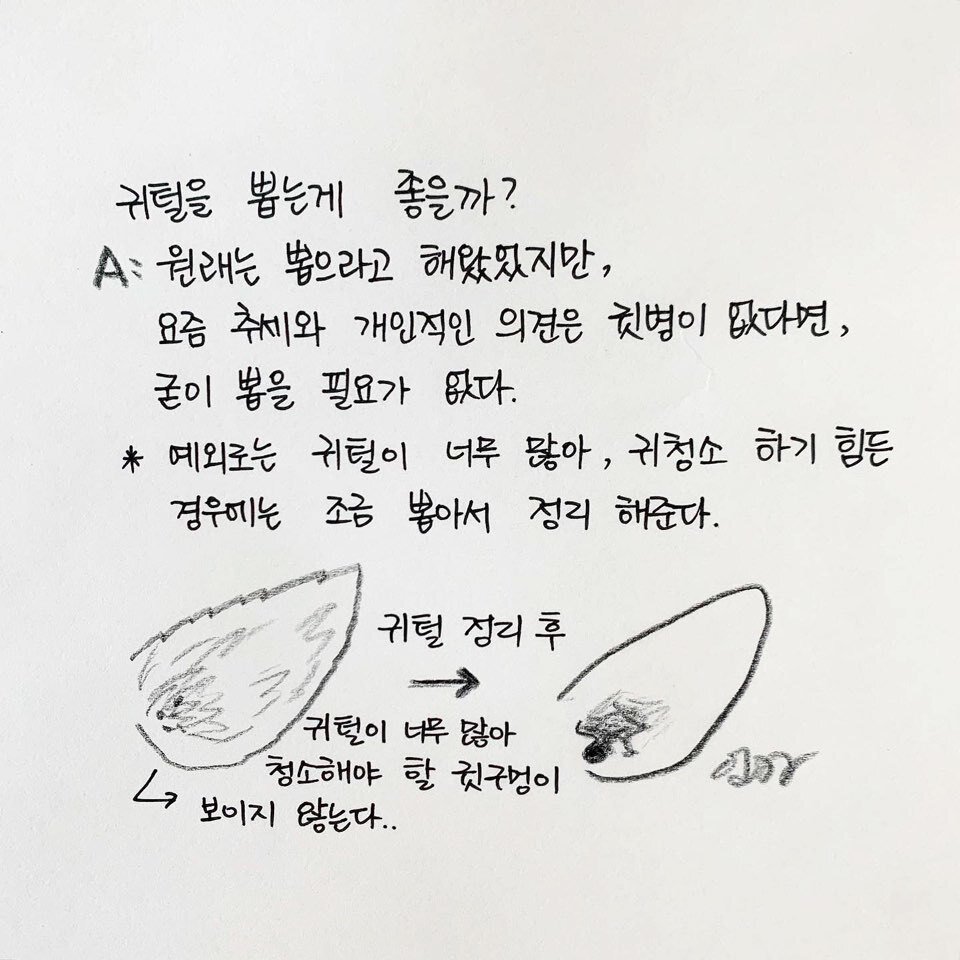 귀털을 뽑는게 좋을까?
A: 원래는 뽑으라고 해왔었지만,
요즘 추세와 개인적인 의견은 귓병이 없다면,
굳이 뽑을 필요가 없다.
* 예외로는 귀털이 너무 많아, 귀청소 하기 힘든
경우에는 조금 뽑아서 정리 해준다.
귀털 정리 후
→
귀털이 너무 많아
청소해야 할 귓구멍이
보이지 않는다..